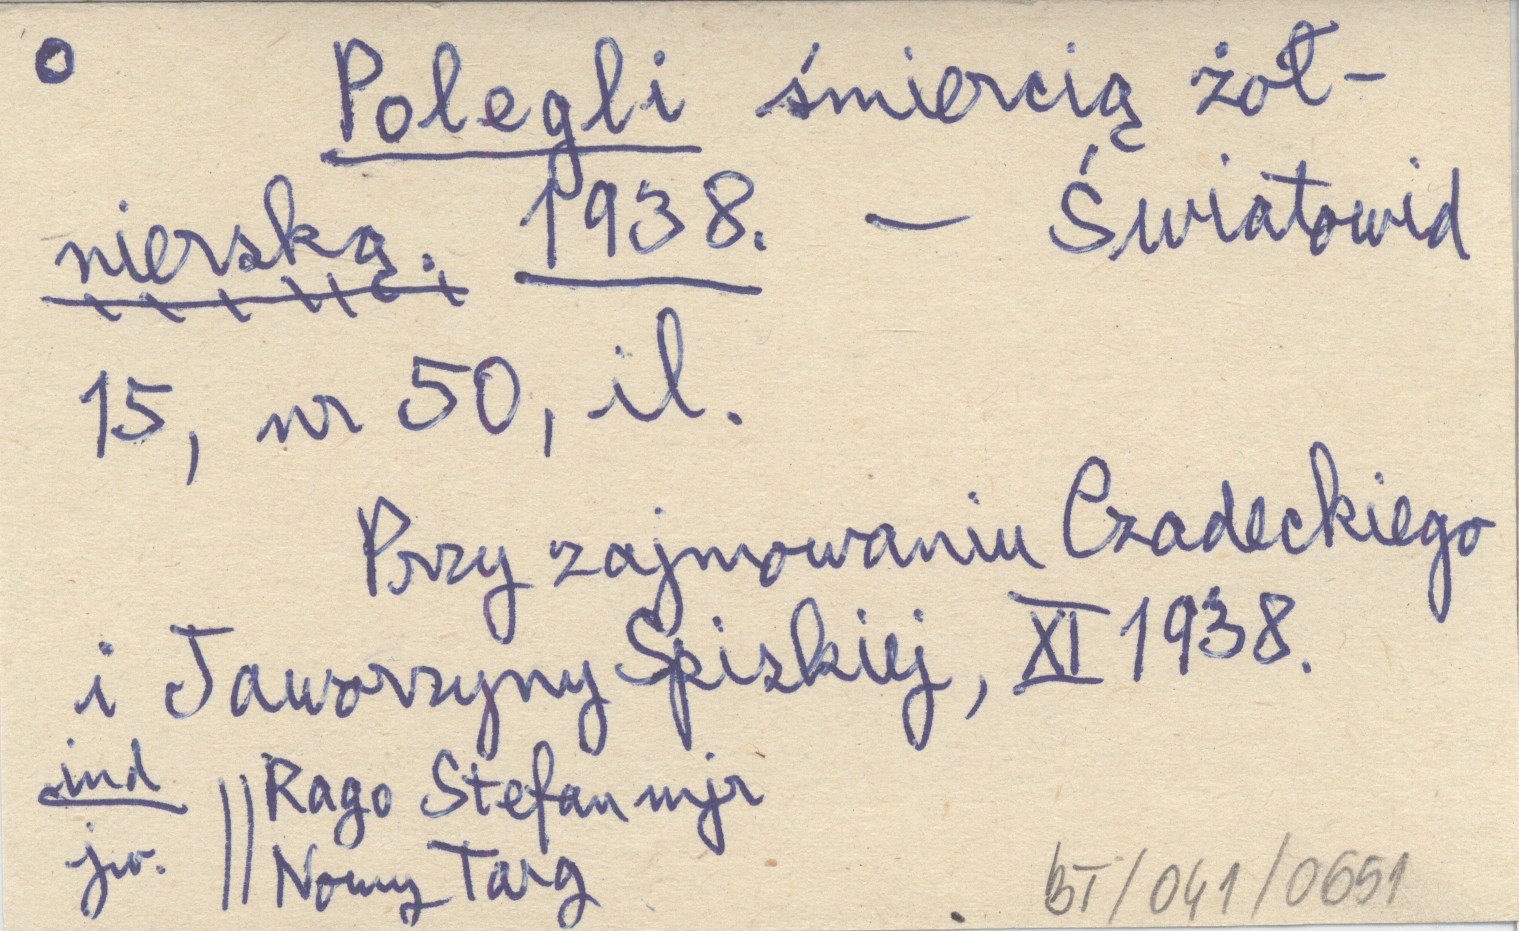 Polegli śmiercią żoł-
nierską. 1938. — Światowid
15, nr 50, il.
Przy zajmowaniu Czadeckiego
i Jaworzyny Spiskiej, XI 1938.
ind || Rago Stefan mjr
jw. || Nowy Targ
BT/041/0651